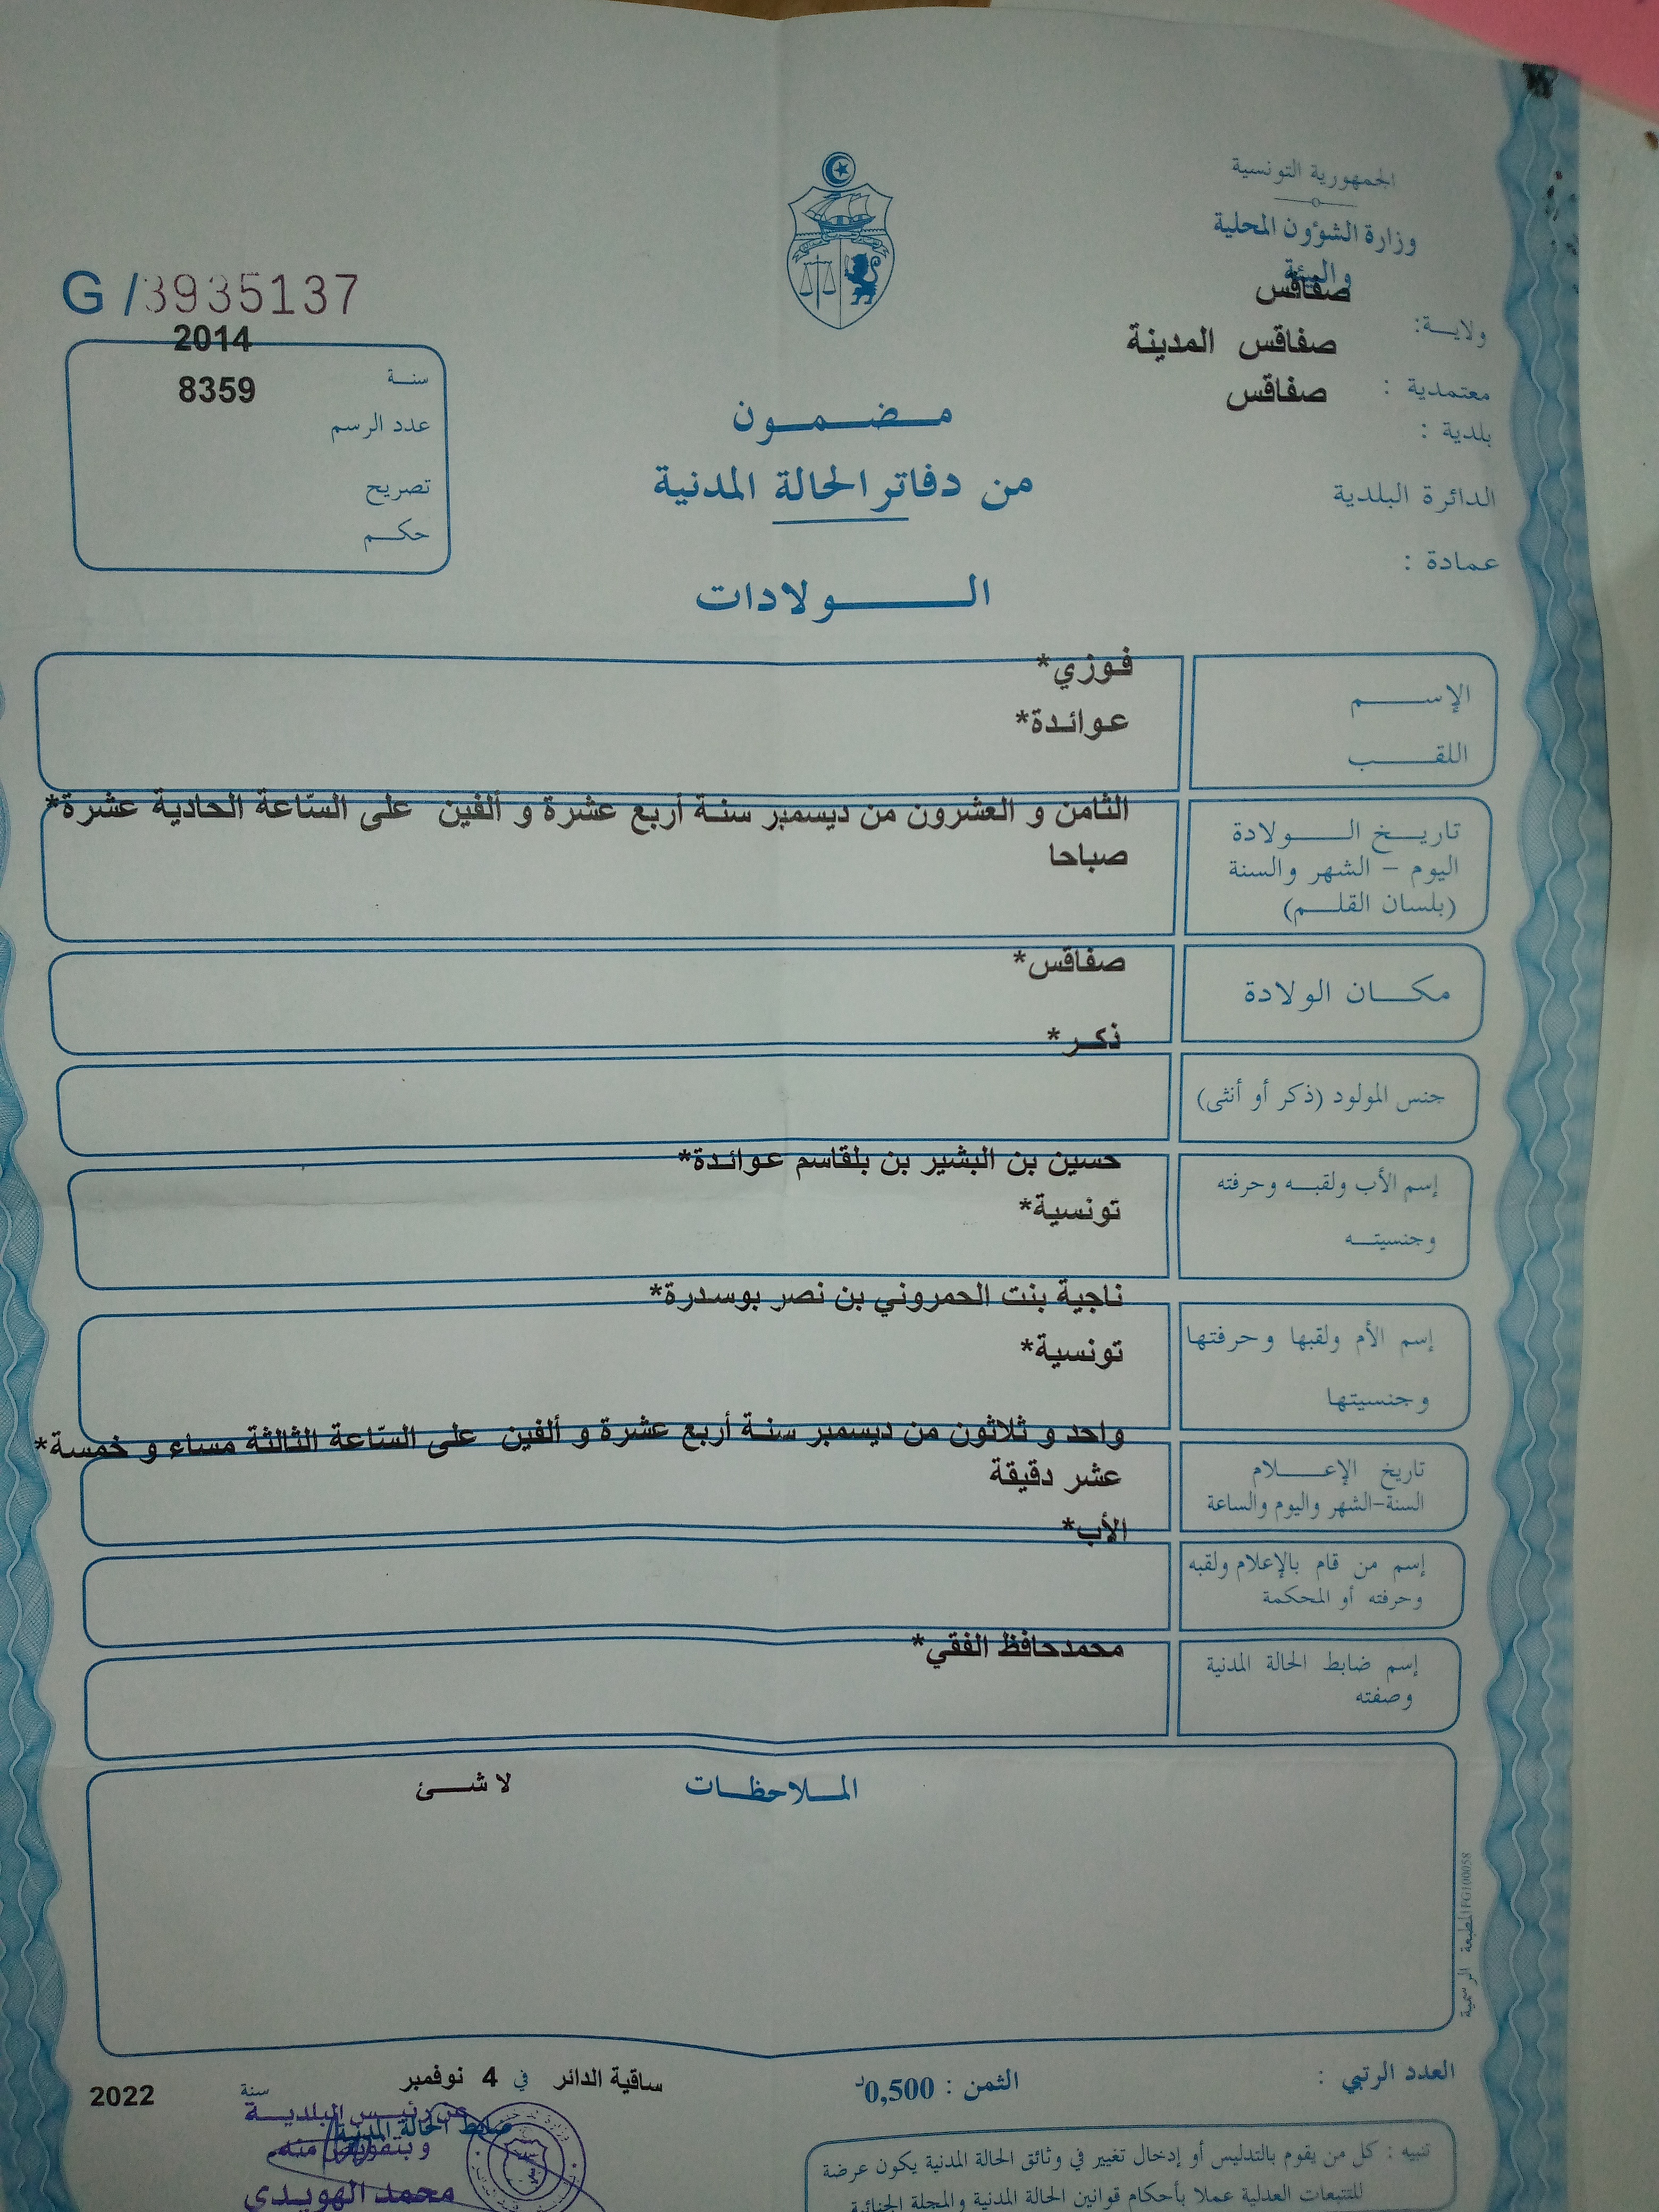 الجمهورية التونسية
وزارة الشؤون المحلية
والبيئة
ولايـــة: صفاقس
معتمدية : صفاقس المدينة
بلدية : صفاقس
الدائرة البلدية
عمادة :
G /3935137
سنـــة 2014
عدد الرسم 8359
تصريح
حكــم
مـضـمـون
من دفاتر الحالة المدنية
الـــولادات
الإســـم فوزي*
اللقـــب عوائدة*
تاريـــخ الـــولادة الثامن و العشرون من ديسمبر سنة أربع عشرة و ألفين على السّاعة الحادية عشرة*
اليوم – الشهر والسنة صباحا
(بلسان القلـــم)
مكـــان الولادة صفاقس*
جنس المولود (ذكر أو أنثى) ذكر*
إسم الأب ولقبـه وحرفته حسين بن البشير بن بلقاسم عوائدة*
وجنسيتـــه تونسية*
إسم الأم ولقبها وحرفتها ناجية بنت الحمروني بن نصر بوسدرة*
وجنسيتها تونسية*
تاريخ الإعـــلام واحد و ثلاثون من ديسمبر سنة أربع عشرة و ألفين على السّاعة الثالثة مساء و خمسة*
السنة-الشهر واليوم والساعة عشر دقيقة
إسم من قام بالإعلام ولقبه الأب*
وحرفته أو المحكمة
إسم ضابط الحالة المدنية محمدحافظ الفقي*
وصفته
المـــلاحظـــات لا شـــئ
المطبعة الرسمية FG100058
العدد الرتبي :
الثمن : 0,500د
ساقية الدائر في 4 نوفمبر سنة 2022
ضابط الحالة المدنية
عن رئيس البلديـــة
وبتفويض منه
محمد الهويـدي
تنبيه : كل من يقوم بالتدليس أو إدخال تغيير في وثائق الحالة المدنية يكون عرضة
للتتبعات العدلية عملا بأحكام قوانين الحالة المدنية والمجلة الجنائية